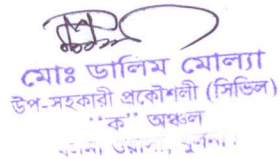 মোঃ ডালিম মোল্যা
উপ-সহকারী প্রকৌশলী (সিভিল)
“ক” অঞ্চল
ওয়াসা, খুলনা।